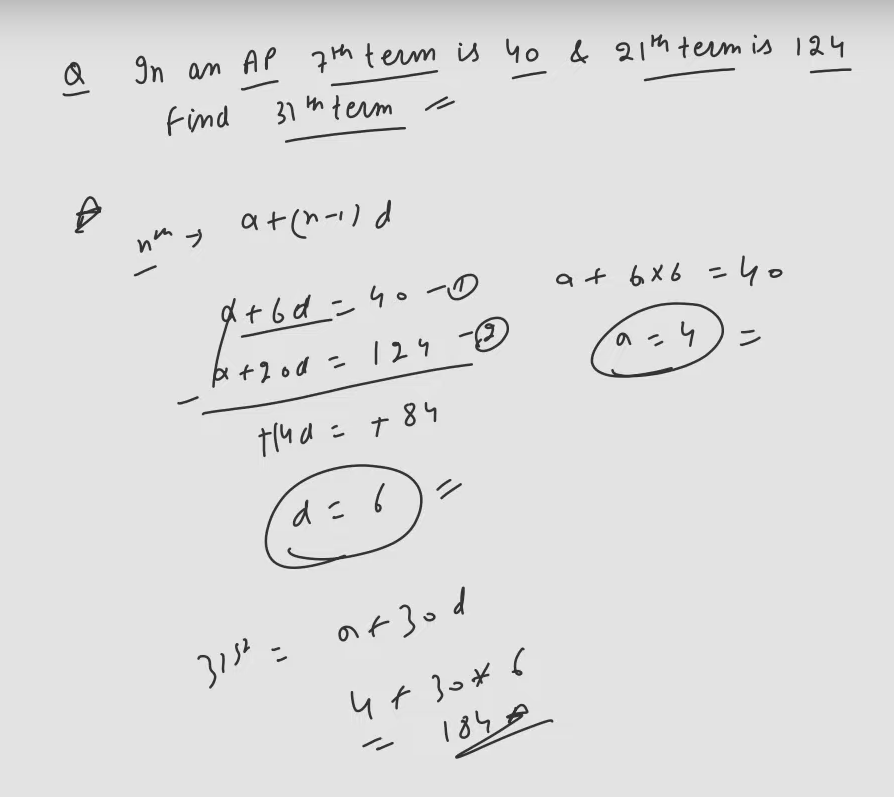 Q In an AP 7th term is 40 & 21th term is 124
Find 31th term =
nth → a+(n-1)d
a+6d = 40 - ①
a+20d = 124 - ②
-
+14d = +84
d = 6 =
a + 6x6 = 40
a = 4 =
31st = a+30d
4 + 30* 6
= 184